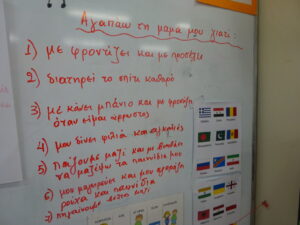 Αγαπάω τη μαμά μου γιατί:
1) με φροντίζει και με προσέχει
2) διατηρεί το σπίτι καθαρό
3) με κάνει μπάνιο και με φροντίζει
όταν είμαι άρρωστος
4) μου δίνει φιλιά και αγκαλιές
5) παίζουμε μαζί και με βοηθάει
να μαζέψω τα παιχνίδια μου
6) μου μαγειρεύει και μου αγοράζει
ρούχα και παιχνίδια
7) πηγαίνουμε βόλτες μαζί